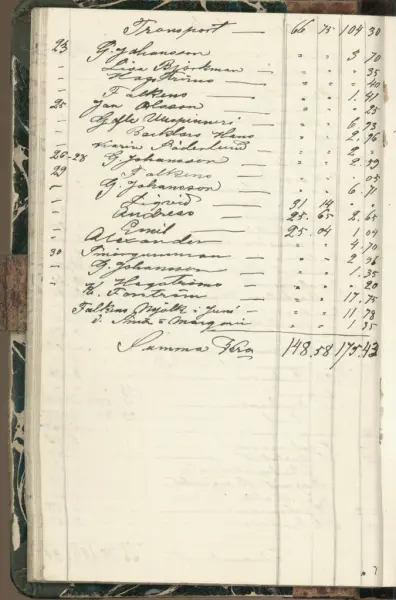 Transport — 66 75 104 30
23 G. Johansson — " " 3 70
— Lisa Björkman — " " " 35
— Hagströms — " " " 40
— Falkens — " " 1. 41
25 Jan Olsson — " " " 25
— Gefle — " " 6 93
— Hans " " 2. 96
— Karin Söderlund — " " 2 "
26-28 G. Johansson — " " 2 59
29 Falkens — " " " 05
— G. Johansson — " " 6. 71
— Sigrid — 31 14 " "
— Andreas — 25. 65 2. 65
— Emil — 25. 04 1 04
— Alexander — " " 4. 70
— — " " 2 96
30 G. Johansson — " " 1. 35
— Hagströms — " " " 20
— Forström — " " 17. 75
Falkens Mjölk i Juni — " " 11. 78
d. Smör & Margarin " " 1 35
Summa Kro 148. 58 175. 43